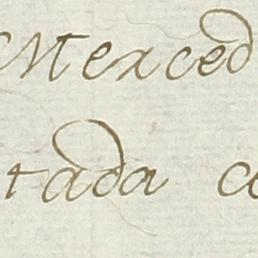 Merced
tada co